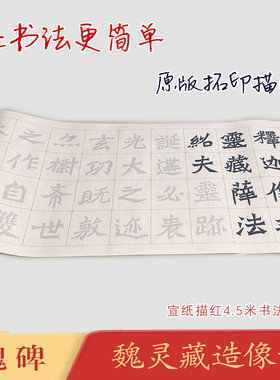 书法更简单
原版拓印描
釋迦像
靈藏薛法
紹夫靈跡
誕遘必表
光大之迹
玄功既敷
之作自雙
宣纸描红4.5米书法
碑
魏灵藏造像